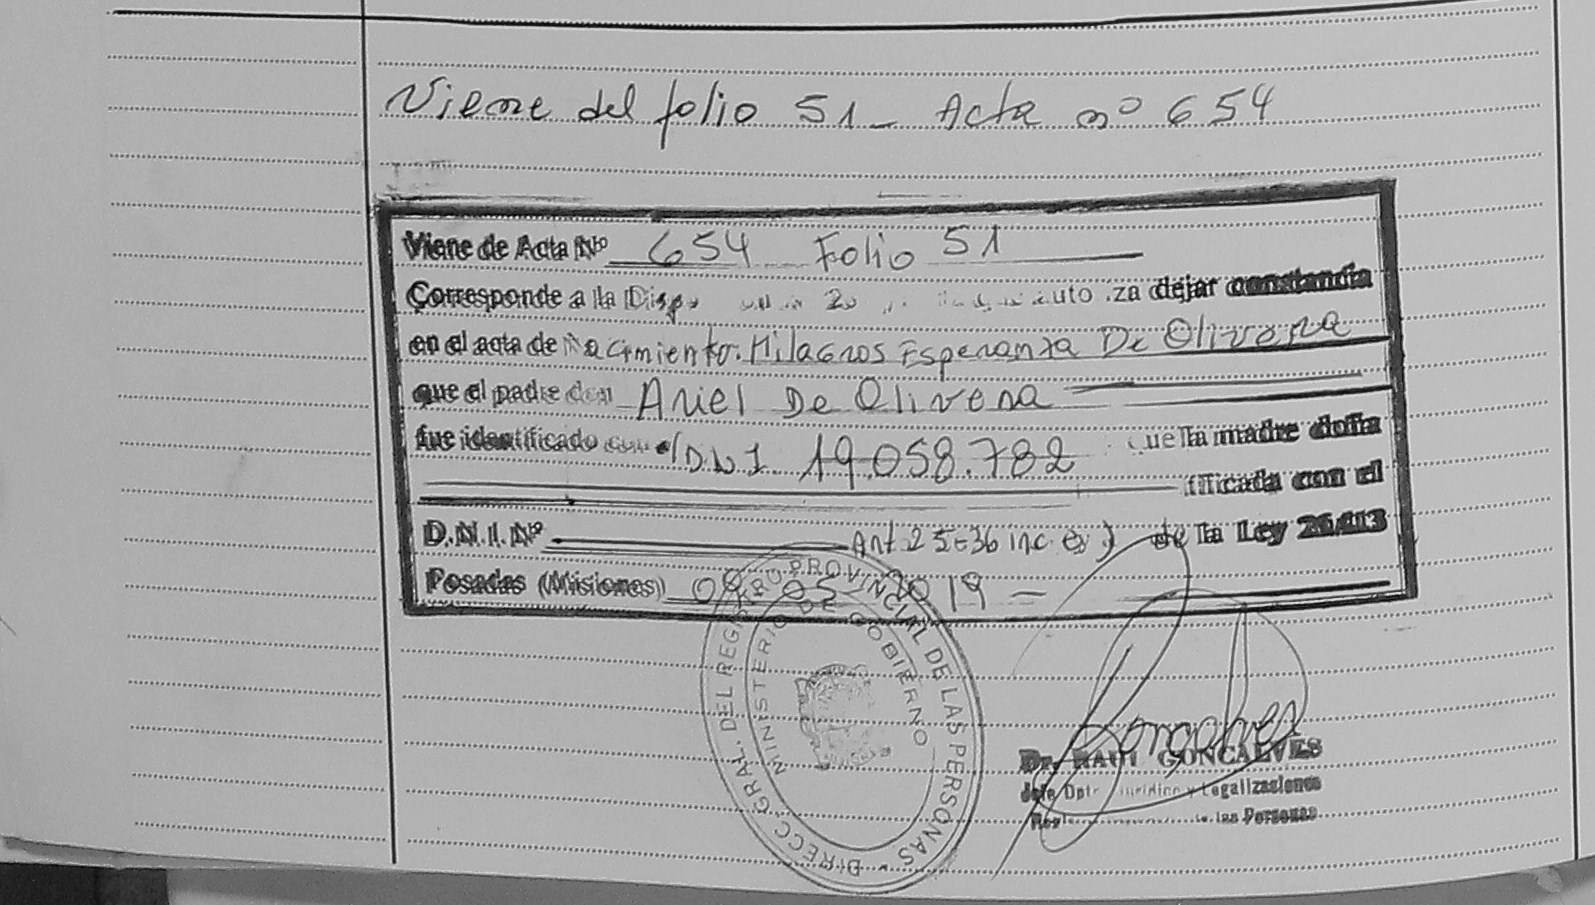 Viene del folio 51 - Acta nº 654
Viene de Acta Nº 654 Folio 51
Corresponde a la Disp. dejar constancia
en el acta de Nacimiento. Milagros Esperanza De Olivera
que el padre don Ariel De Olivera
fue identificado con el D.N.I. 19.058.782 que la madre doña
ificada con el
D.N.I. Nº Art. 25-36 inc. e) de la Ley 26.413
Posadas (Misiones) 09 05 2019 -
DIRECC. GRAL. DEL REGISTRO PROVINCIAL DE LAS PERSONAS
MINISTERIO DE GOBIERNO
Goncalves
Dr. RAUL GONCALVES
Jefe Dpto. Jurídico y Legalizaciones
las Personas